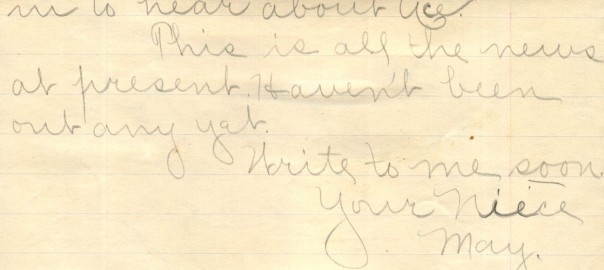 in to hear about Ace.
This is all the news
at present. Haven't been
out any yet.
Write to me soon.
Your Niece
May.